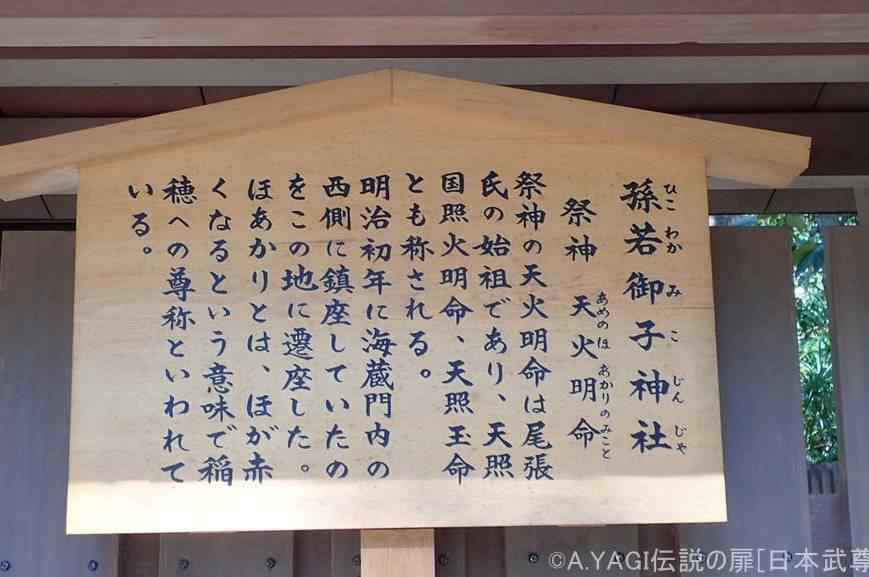 孫若御子神社
ひこわかみこじんじゃ
祭神 天火明命
あめのほあかりのみこと
祭神の天火明命は尾張
氏の始祖であり、天照
国照火明命、天照玉命
とも称される。
明治初年に海蔵門内の
西側に鎮座していたの
をこの地に遷座した。
ほあかりとは、ほが赤
くなるという意味で稲
穂への尊称といわれて
いる。
©A.YAGI伝説の扉[日本武尊